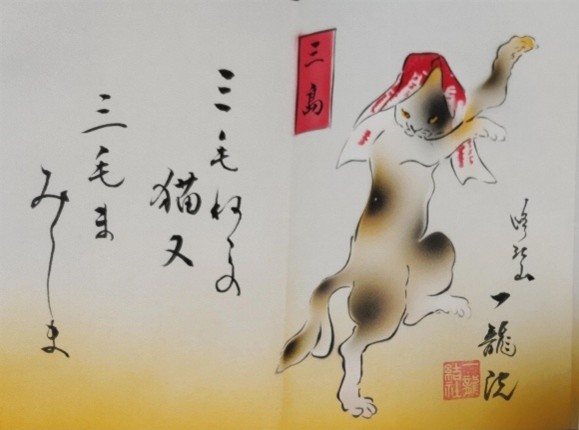 一龍
三島
三毛ねこの
猫又
三毛ま
みしま